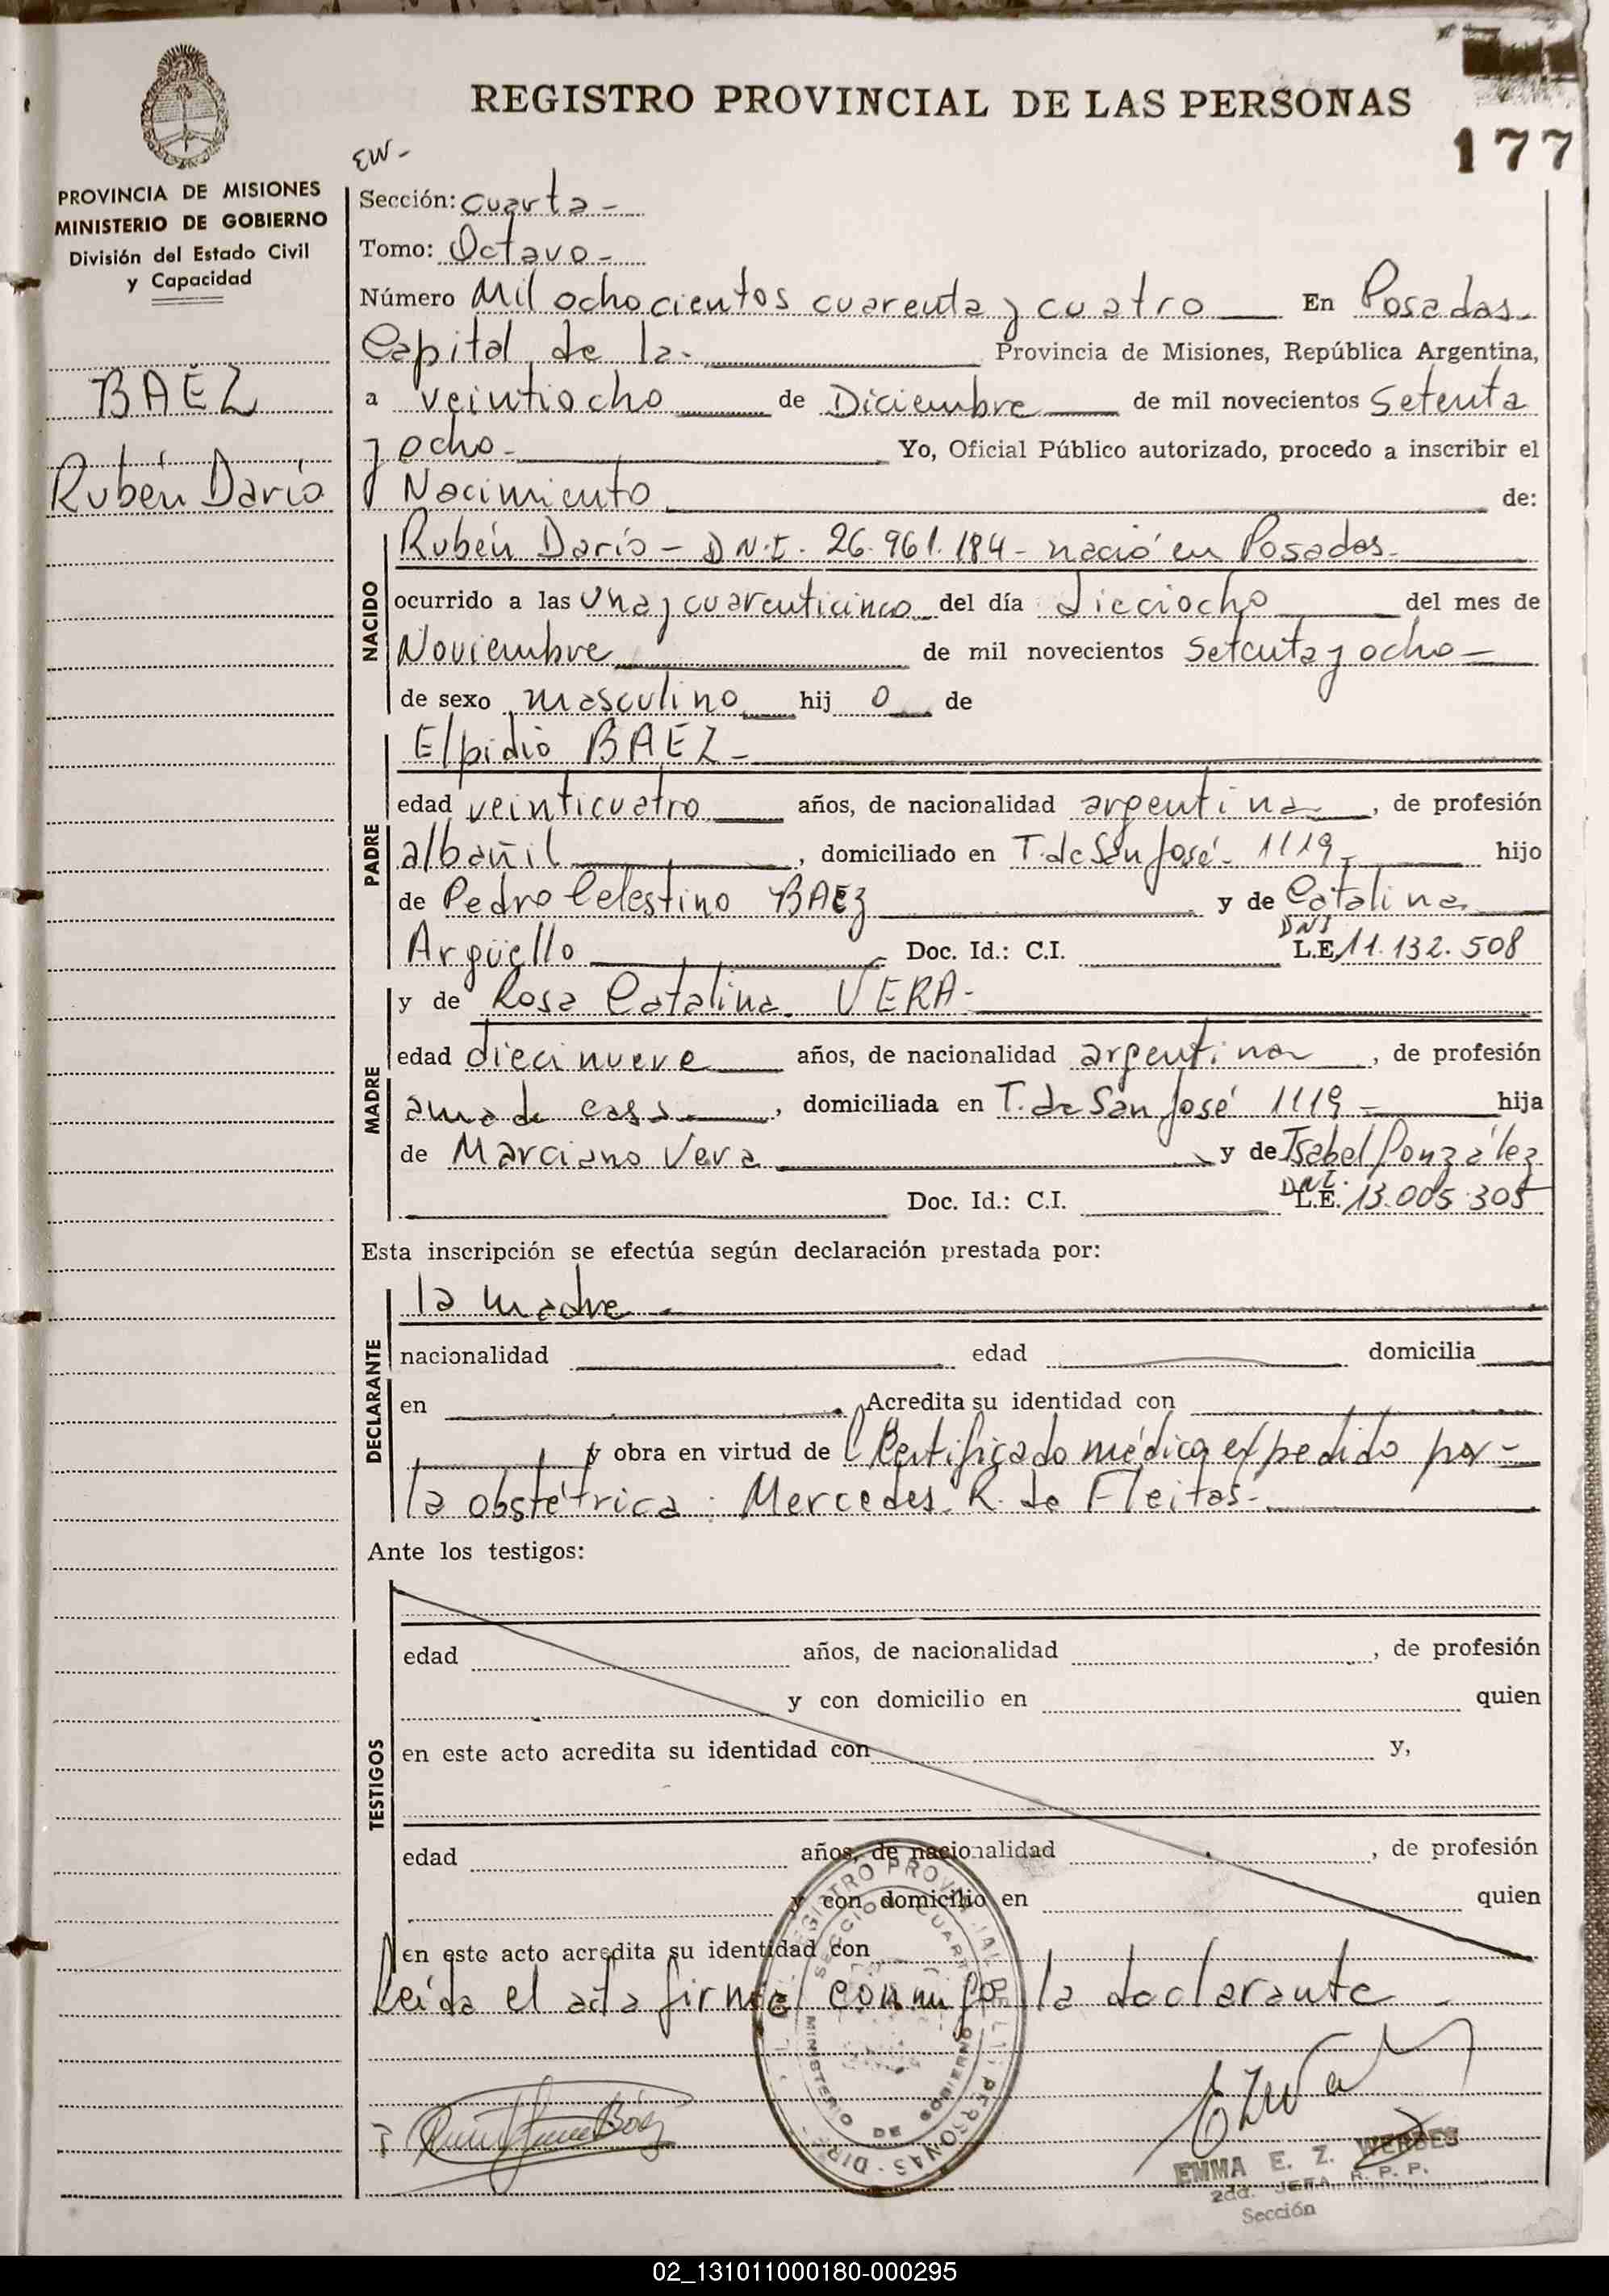 REGISTRO PROVINCIAL DE LAS PERSONAS
177
PROVINCIA DE MISIONES
MINISTERIO DE GOBIERNO
División del Estado Civil
y Capacidad
BAEZ
Rubén Darío
EW-
Sección: Cuarta -
Tomo: Octavo -
Número Mil ochocientos cuarenta y cuatro En Posadas
Capital de la Provincia de Misiones, República Argentina,
a veintiocho de Diciembre de mil novecientos Setenta
y ocho. Yo, Oficial Público autorizado, procedo a inscribir el
Nacimiento de:
NACIDO
Rubén Darío - D.N.I. 26.961.184 - nació en Posadas.
ocurrido a las una y cuarenticinco del día dieciocho del mes de
Noviembre de mil novecientos Setenta y ocho -
de sexo masculino hij o de
PADRE
Elpidio BAEZ -
edad veinticuatro años, de nacionalidad argentina, de profesión
albañil, domiciliado en T. de San José - 1119 - hijo
de Pedro Celestino BAEZ y de Catalina
Argüello Doc. Id.: C.I. DNI L.E. 11.132.508
MADRE
y de Rosa Catalina VERA -
edad diecinueve años, de nacionalidad argentina, de profesión
ama de casa, domiciliada en T. de San José 1119 - hija
de Marciano Vera y de Isabel González
Doc. Id.: C.I. DNI. L.E. 13.005.305
Esta inscripción se efectúa según declaración prestada por:
DECLARANTE
la madre -
nacionalidad edad domicilia
en Acredita su identidad con
y obra en virtud de Certificado médico expedido por -
la obstétrica: Mercedes R. de Fleitas -
Ante los testigos:
TESTIGOS
edad años, de nacionalidad , de profesión
y con domicilio en quien
en este acto acredita su identidad con y,
edad años, de nacionalidad , de profesión
y con domicilio en quien
en este acto acredita su identidad con
Leída el acta firma conmigo la declarante -
SECCION CUARTA
MINISTERIO DE GOBIERNO
EMMA E. Z. WERDES
2da. JEFA R. P. P.
Sección
02_131011000180-000295